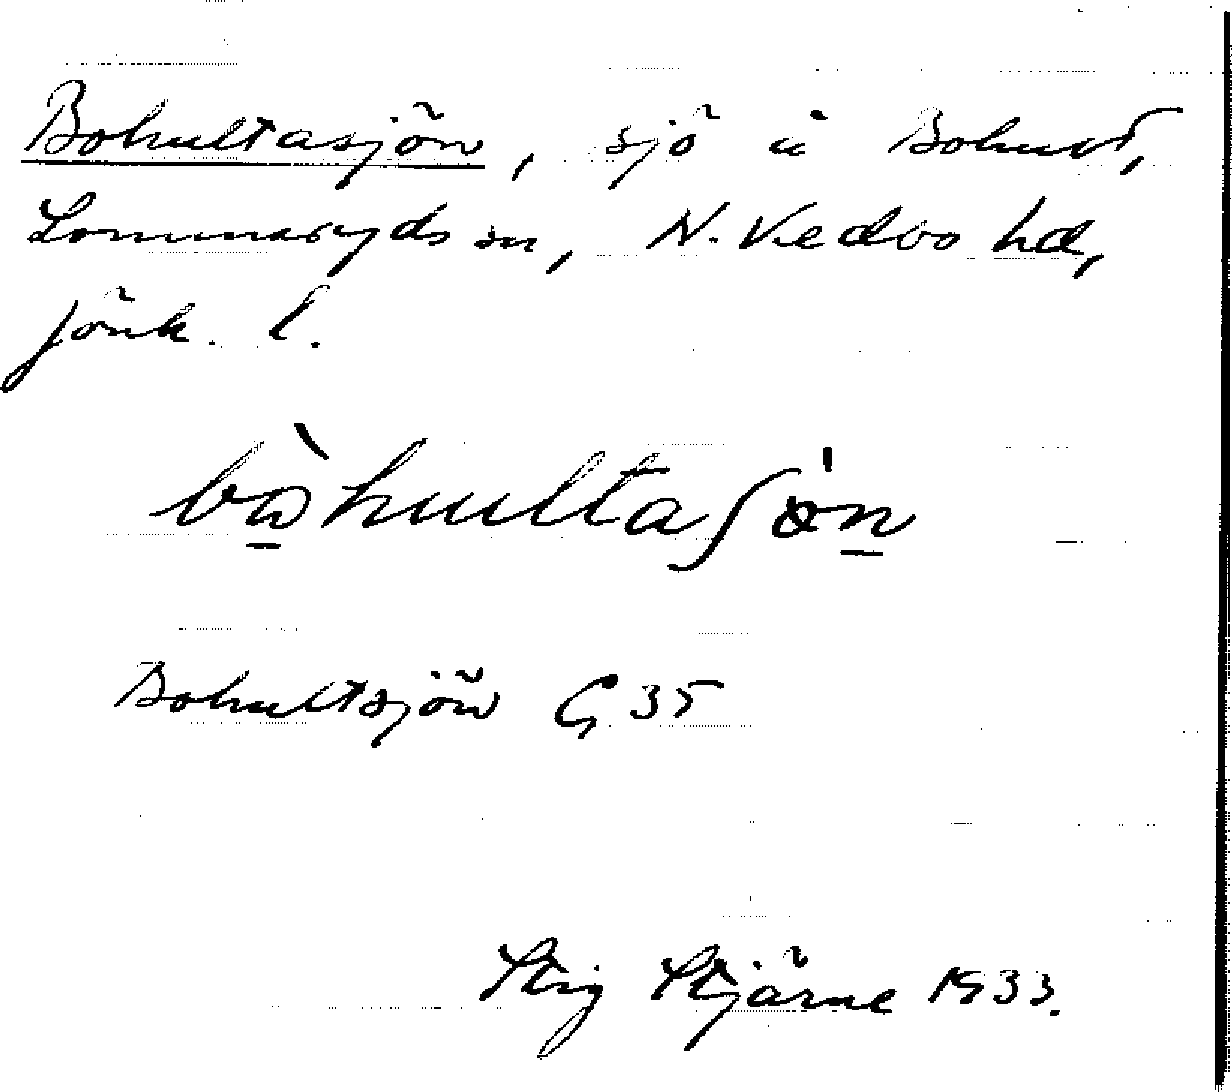 Bohultasjön, sjö i Bohult,
Lommaryds sn, N. Vedbo hd,
Jönk. l.
bo̠̊̀hultaʃön̠
Bohultsjön G 35
Stig Stjärne 1933.